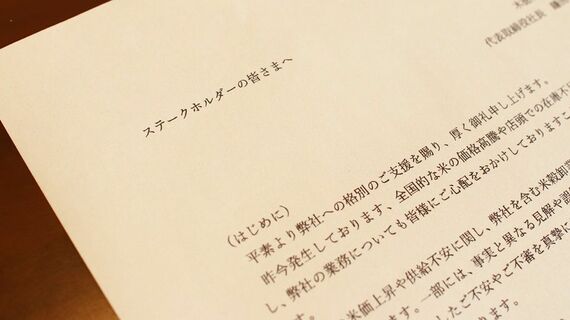 木徳
代表取締役社長 鎌
ステークホルダーの皆さまへ
(はじめに)
平素より弊社への格別のご支援を賜り、厚く御礼申し上げます。
昨今発生しております、全国的な米の価格高騰や店頭での在庫不
し、弊社の業務についても皆様にご心配をおかけしておりますこ
米価上昇や供給不安に関し、弊社を含む米穀卸業
ます。一部には、事実と異なる見解や誤
したご不安やご不審を真摯に
ります。